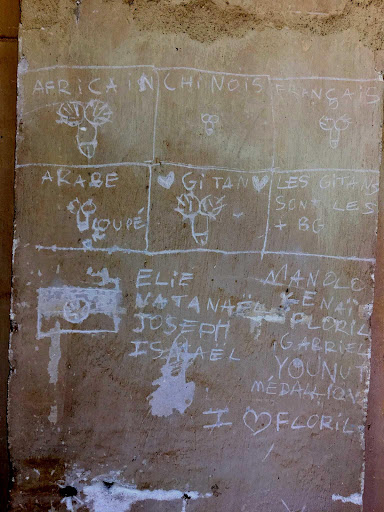 AFRICAIN CHINOIS FRANÇAIS
ARABE ♥ GITAN ♥ LES GITANS
OUPÉ SONT LES
+ BG
ELIE MANOLO
NATANAEL KENAÏ
JOSEPH FLORIL
ISMAEL GABRIEL
I ♡ FLORIL